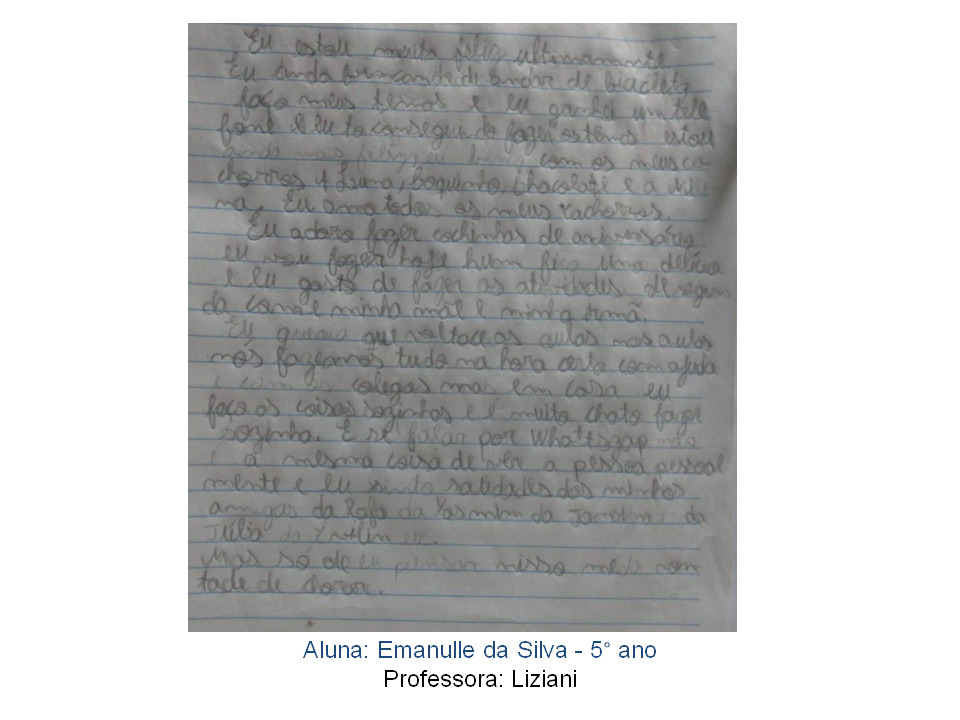 Eu estou muito feliz ultimamente
Eu ando brincando di andar de bicicleta
faço meus temas e eu ganhei um tele
fone e eu to conseguindo fazer os temas estou
ainda mais feliz, eu brinco com os meus ca
chorros Luna, Boquinha, Chocolate e a
na. Eu amo todos os meus cachorros.
Eu adoro fazer cochinhas de aniversário
eu vou fazer hoje hum fica uma delícia
e eu gosto de fazer as atividades de segun
da com e minha mãe e minha irmã.
Eu queria que voltace as aulas nas aulas
nós fazemos tudo na hora certa com ajuda
e com os colegas mas em casa eu
faço as coisas sozinhas e é muito chato fazer
sozinha. E se falar por Whattsgap não
é a mesma coisa de ver a pessoa pessoal
mente e eu sinto saudades das minhas
amigas da Rafa da Yasmim da da
Júlia da etc.
Mas só de eu pensar nisso me da von
tade de chorar.
Aluna: Emanulle da Silva - 5° ano
Professora: Liziani